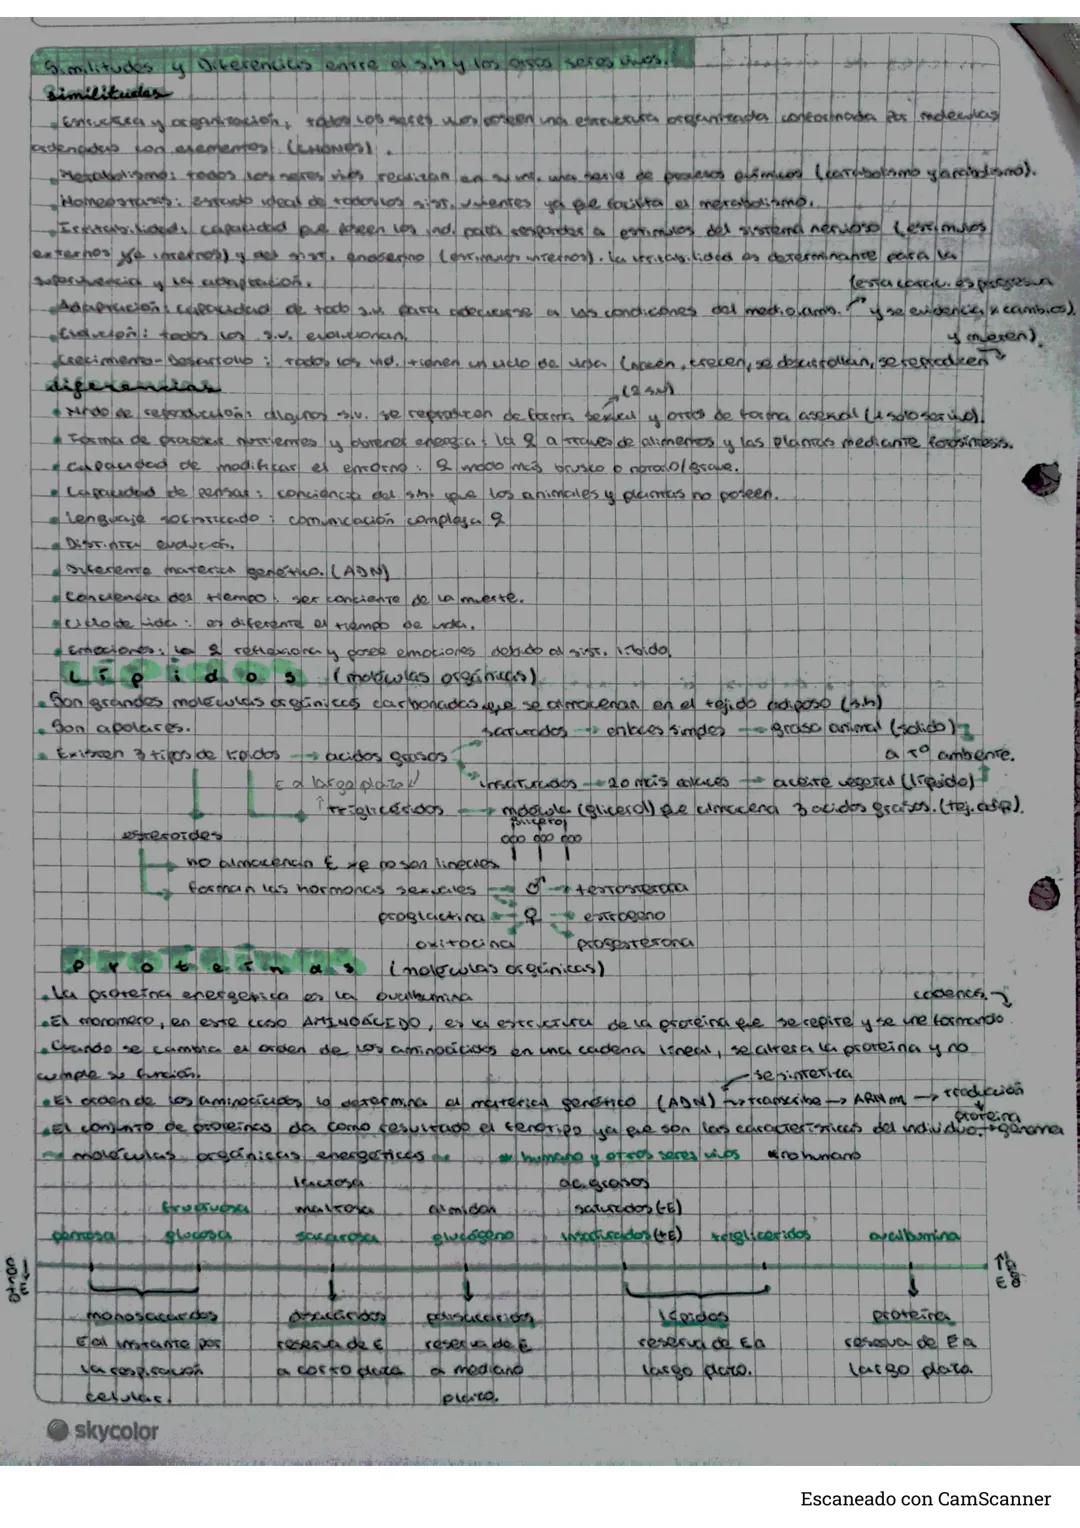 Similitudes y Diferencias entre el s.h y los otros seres vivos.
similitudes
• Estructura y organización: todos los seres vivos poseen una estructura organizada conformada por moléculas
ordenadas con elementos. (CHONPS).
• Metabolismo: todos los seres vivos realizan en su int. una serie de procesos químicos (catabolismo y anabolismo).
• Homeostasis: estado ideal de todos los sist. vivientes ya que facilita el metabolismo.
• Irritabilidad: capacidad que poseen los ind. para responder a estímulos del sistema nervioso (estímulos
externos y/o internos) y del sist. endocrino (estímulos internos). La irritabilidad es determinante para la
supervivencia y la adaptación.
(esta caract. es progresiva
• Adaptación: capacidad de todo s.v. para adecuarse a las condiciones del medio amb. y se evidencia x cambios).
• Evolución: todos los s.v. evolucionan.
y mueren).
• Crecimiento-Desarrollo: todos los ind. tienen un ciclo de vida (nacen, crecen, se desarrollan, se reproducen
diferencias
(2 s.v)
• Modo de reproducción: algunos s.v. se reproducen de forma sexual y otros de forma asexual (1 solo ser vivo).
• Forma de procesar nutrientes y obtener energía: la ♀ a traves de alimentos y las plantas mediante fotosíntesis.
• Capacidad de modificar el entorno: ♀ modo más brusco o notorio/grave.
• Capacidad de pensar: conciencia del s.h. que los animales y plantas no poseen.
• Lenguaje sofisticado: comunicación compleja ♀
• Distinta evolución.
• Diferente material genético. (ADN)
• Conciencia del tiempo: ser conciente de la muerte.
• Ciclo de vida: es diferente el tiempo de vida.
• Emociones: la ♀ reflexiona y posee emociones debido al sist. límbido.
Lípidos (moléculas orgánicas)
• Son grandes moléculas orgánicas carbonadas que se almacenan en el tejido adiposo (s.h)
• Son apolares.
saturados → enlaces simples → grasa animal (sólido)
• Existen 3 tipos de lípidos → acidos grasos
a T° ambente.
E a largo plazo
insaturados → 2 o más enlaces → aceite vegetal (líquido)
triglicéridos → molécula (glicerol) que almacena 3 acidos grasos. (tej. adip).
esteroides
glicerol
no almacenan E xq no son lineales
forman las hormonas sexuales → ♂ → testosterona
proglactina ← ♀ → estrogeno
oxitocina progesterona
Proteínas (moléculas orgánicas)
• La proteína energetica es la ovalbumina
cadenas.
• El monomero, en este caso AMINOÁCIDO, es la estructura de la proteína que se repite y se une formando
• Cuando se cambia el orden de los aminoácidos en una cadena lineal, se altera la proteína y no
cumple su función.
se sintetiza
• El orden de los aminoácidos lo determina el material genético (ADN) → transcribe → ARNm → traducción
proteína
• El conjunto de proteínas da como resultado el fenotipo ya que son las características del individuo. + genoma
moléculas orgánicas energéticas
humano y otros seres vivos
no humano
lactosa ac. grasos
fructuosa maltosa almidón saturados (-E)
pentosa glucosa sacarosa glucógeno insaturados (+E) trigliceridos ovalbumina
monosacaridos disacáridos polisacáridos lípidos proteína
E al instante por reserva de E reserva de E reserva de E a reserva de E a
la respiración a corto plazo a mediano largo plazo. largo plazo.
celular. plazo.
skycolor
Escaneado con CamScanner